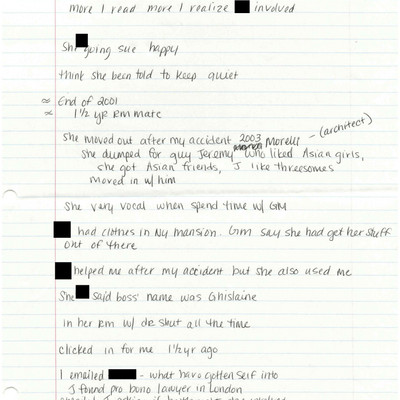 more I read more I realize involved
She going sue happy
think she been told to keep quiet
≈ End of 2001
≈ 1½ yr rm mate
She moved out after my accident 2003 Morelli - (architect)
she dumped for guy Jeremy who liked Asian girls,
she got Asian friends, J like threesomes
moved in w/ him
She very vocal when spend time w/ GM
had clothes in Ny mansion. Gm say she had get her stuff
out of there
helped me after my accident but she also used me
She said boss' name was Ghislaine
in her rm w/ dr shut all the time
clicked in for me 1½ yr ago
I emailed - what have gotten self into
I found pro bono lawyer in London